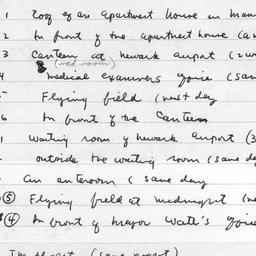 1 Roof of an apartment house in Man
2 In front of the apartment house (a w
3 Canteen at newark airport (2 w
(red room)
4 medical examiners office (sam
5 Flying field (next day
6 In front of the Canteen
1 Waiting room of newark airport (3
outside the waiting room (same d
An anteroom (same day
⑤ Flying field at midnight (ne
④ In front of major Watt's office
(same night)